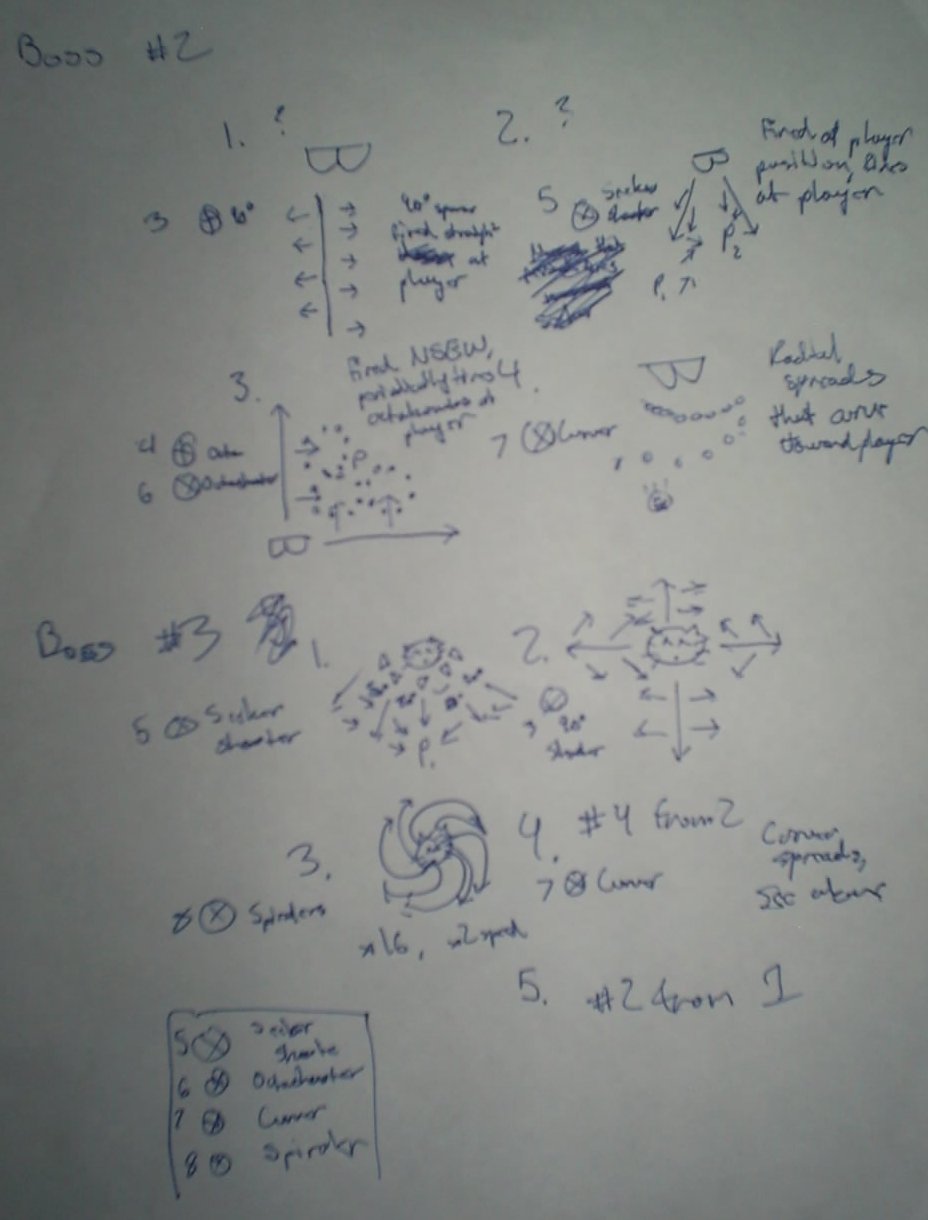 Boss #2
1. ?
B
3
90° spread
fired straight
at
player
2. ?
5
Seeker
shooter
B
Fired at player
position, fires
at player
P2
P1
3.
Fired NSEW,
periodically fires 4
octashooters at
player
4
6 Octashooter
P
B
7 Curver
B
Radial
spreads
that curve
toward player
Boss #3
1.
5 Seeker
shooter
P1
2.
3 90°
Shooter
3.
8 Spinders
x16, x2 speed
4. #4 from 2
7 Curver
Curver
spreads,
see above
5. #2 from 1
5 Seeker
Shooter
6 Octashooter
7 Curver
8 Spinder